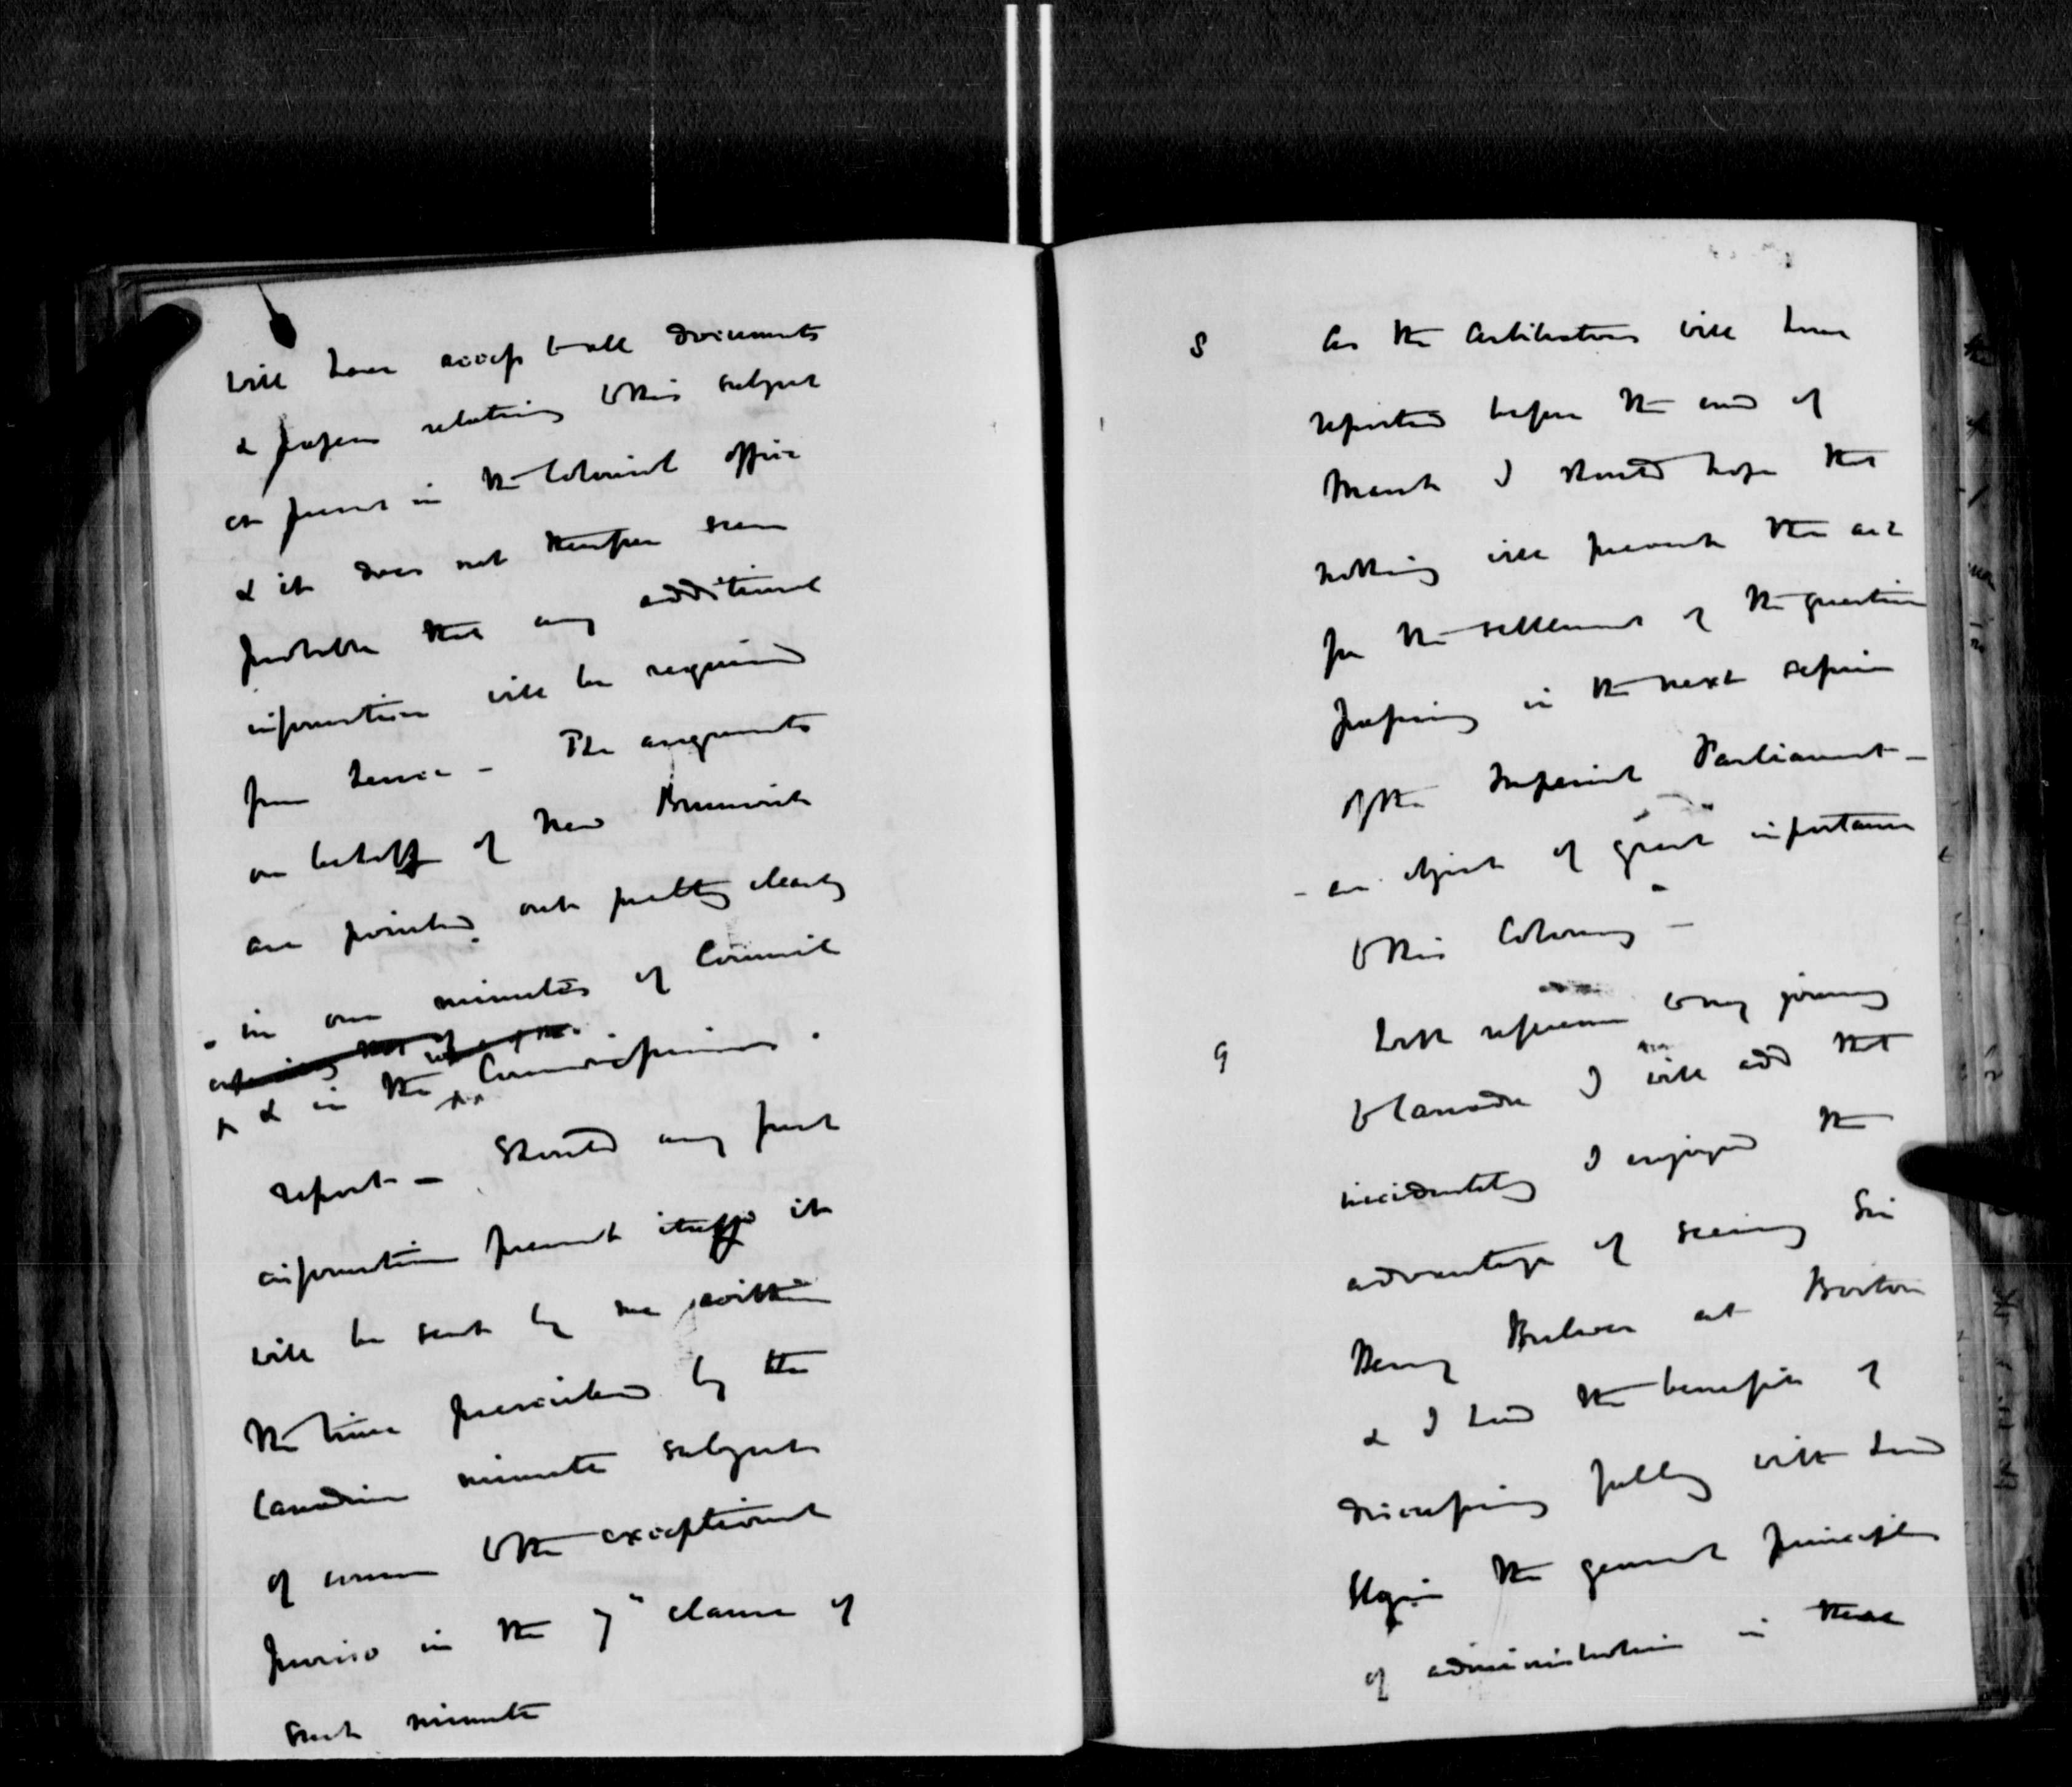 will have access to all documents
& papers relating to this subject
at present in the Colonial office
& it does not therefore seem
probable that any additional
information will be required
from hence - The arguments
on behalf of New Brunswick
are pointed out pretty clearly
in our minutes of Council
& in the Commissioners
report - Should any fresh
information present itself it
will be sent by me within
the time prescribed by the
Canadian minute subject
of course to the exceptional
proviso in the 7" clause of
such minute
8 As the Arbitrators will have
reported before the end of
March I should hope that
nothing will prevent the act
for the settlement of the question
passing in the next session
of the Imperial Parliament -
- an object of great importance
to this Colony -
9 With reference to my journey
to Canada I will add that
incidentally I enjoyed the
advantage of seeing Sir
Henry Bulwer at Boston
& I had the benefit of
discussing fully with Lord
Elgin the general principles
of administration in these